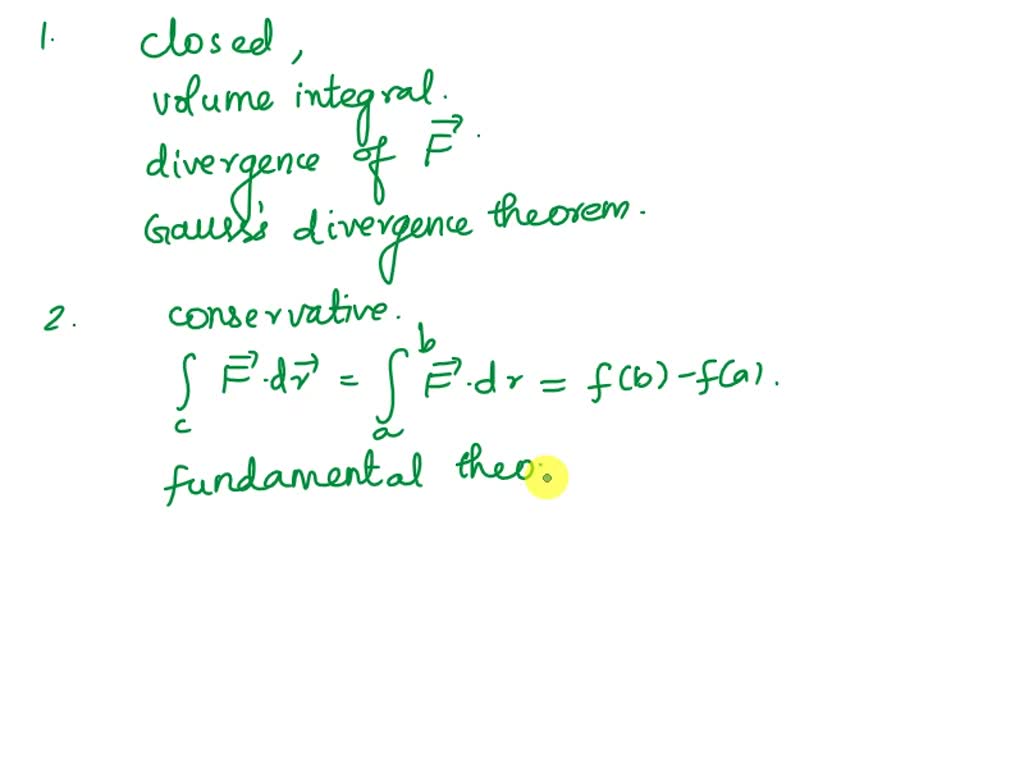 1. closed,
volume integral.
divergence of F⃗.
Gauss's divergence theorem.
2. conservative.
∫_c F⃗·dr⃗ = ∫_a^b F⃗·dr = f(b) - f(a).
fundamental theo